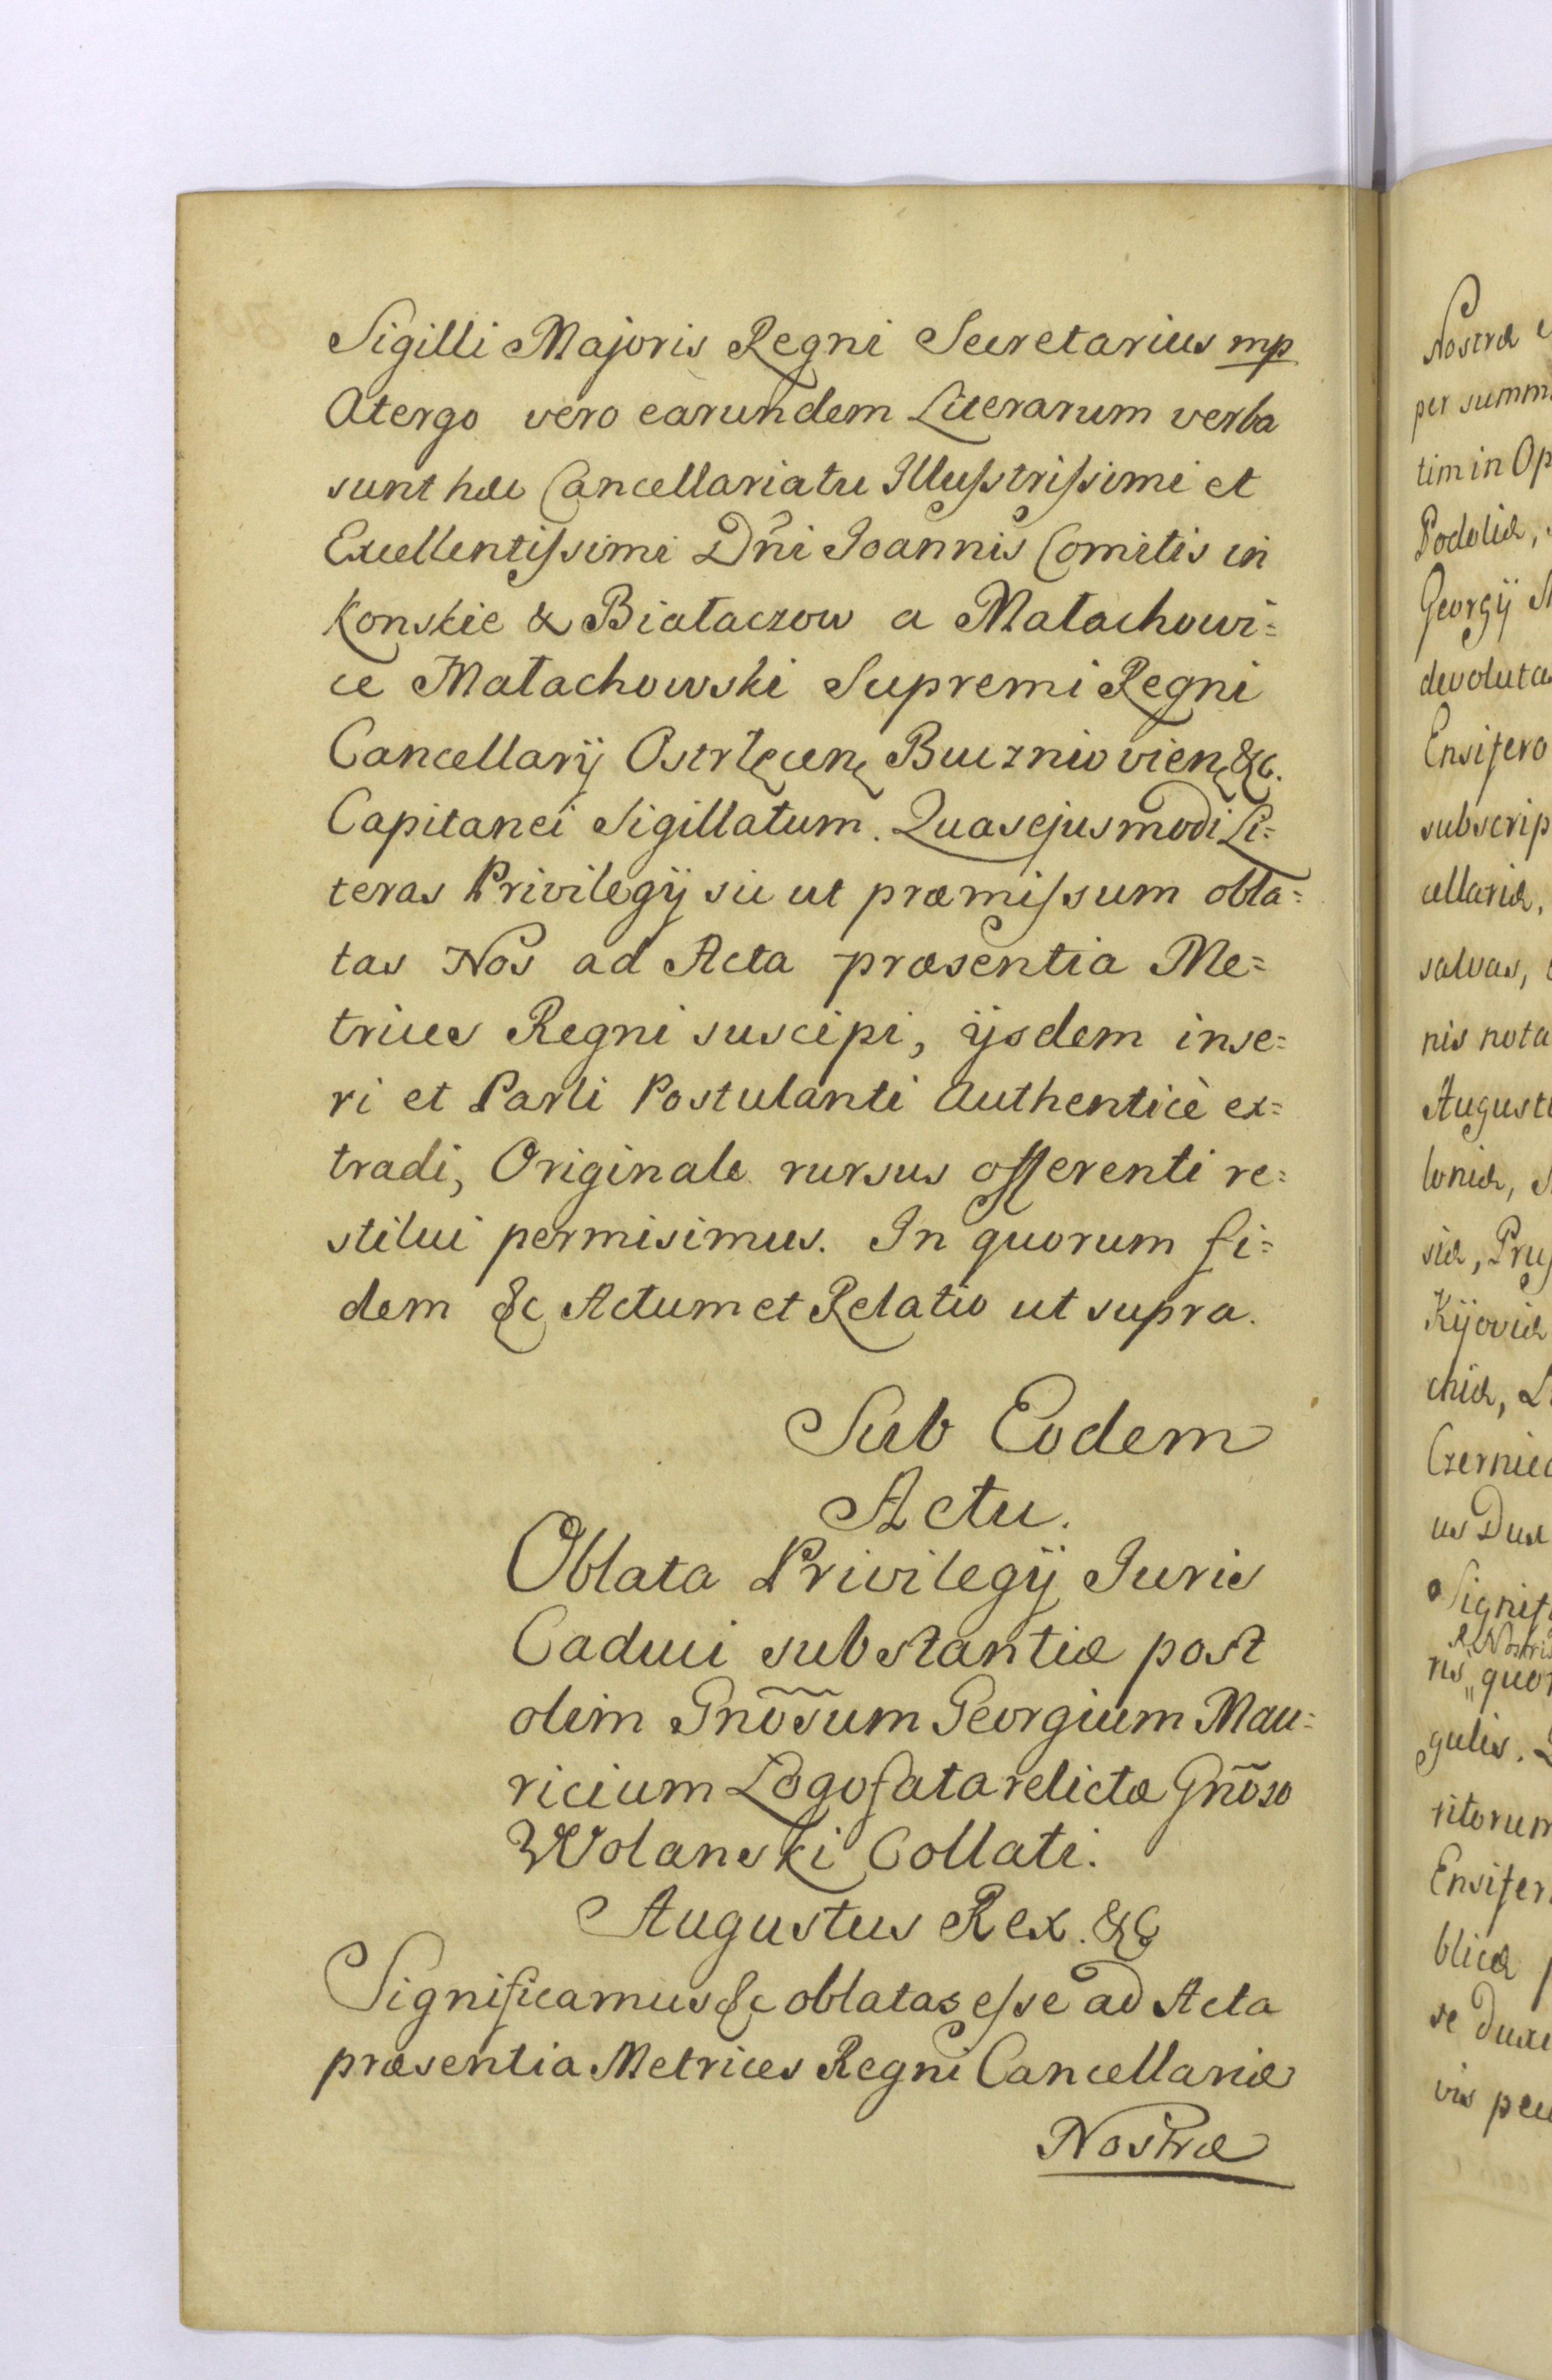 Sigilli Majoris Regni Secretarius mp
Atergo vero earundem Literarum verba
sunt hæc Cancellariatu Illuſstriſsimi et
Excellentiſsimi Dñi Joannis Comitis in
Konskie & Białaczow a Małachowi=
ce Małachowski Supremi Regni
Cancellarij Ostrłęcen Buczniovien &c.
Capitanei Sigillatum. Quas ejusmodi Li=
teras Privilegij sic ut præmiſsum obla=
tas Nos ad Acta præsentia Me=
trices Regni suscipi, ijsdem inse=
ri et Parti Postulanti Authenticè ex=
tradi, Originale rursus offerenti re=
stitui permisimus. In quorum fi=
dem &c Actum et Relatio ut supra.
Sub Eodem
Actu.
Oblata Privilegij Juris
Caduci substantiæ post
olim Gnõsum Georgium Mau=
ricium Logofata relictæ Gnõso
Wolanski Collati.
Augustus Rex. &c
Significamus &c oblatas eſse ad Acta
præsentia Metrices Regni Cancellariæ
Nostræ
Nostræ
per summ
tim in Op
Podoliæ,
Georgij
devoluta
Ensifero
subscrip
cellariæ,
salvas,
nis nota
Augustu
loniæ,
siæ, Pruſ
Kijoviæ
chiæ,
Czernie
us Dux
Signif
Nostris
ris quor
gulis.
ritorum
Ensifer
blicæ
se dux
vis pec